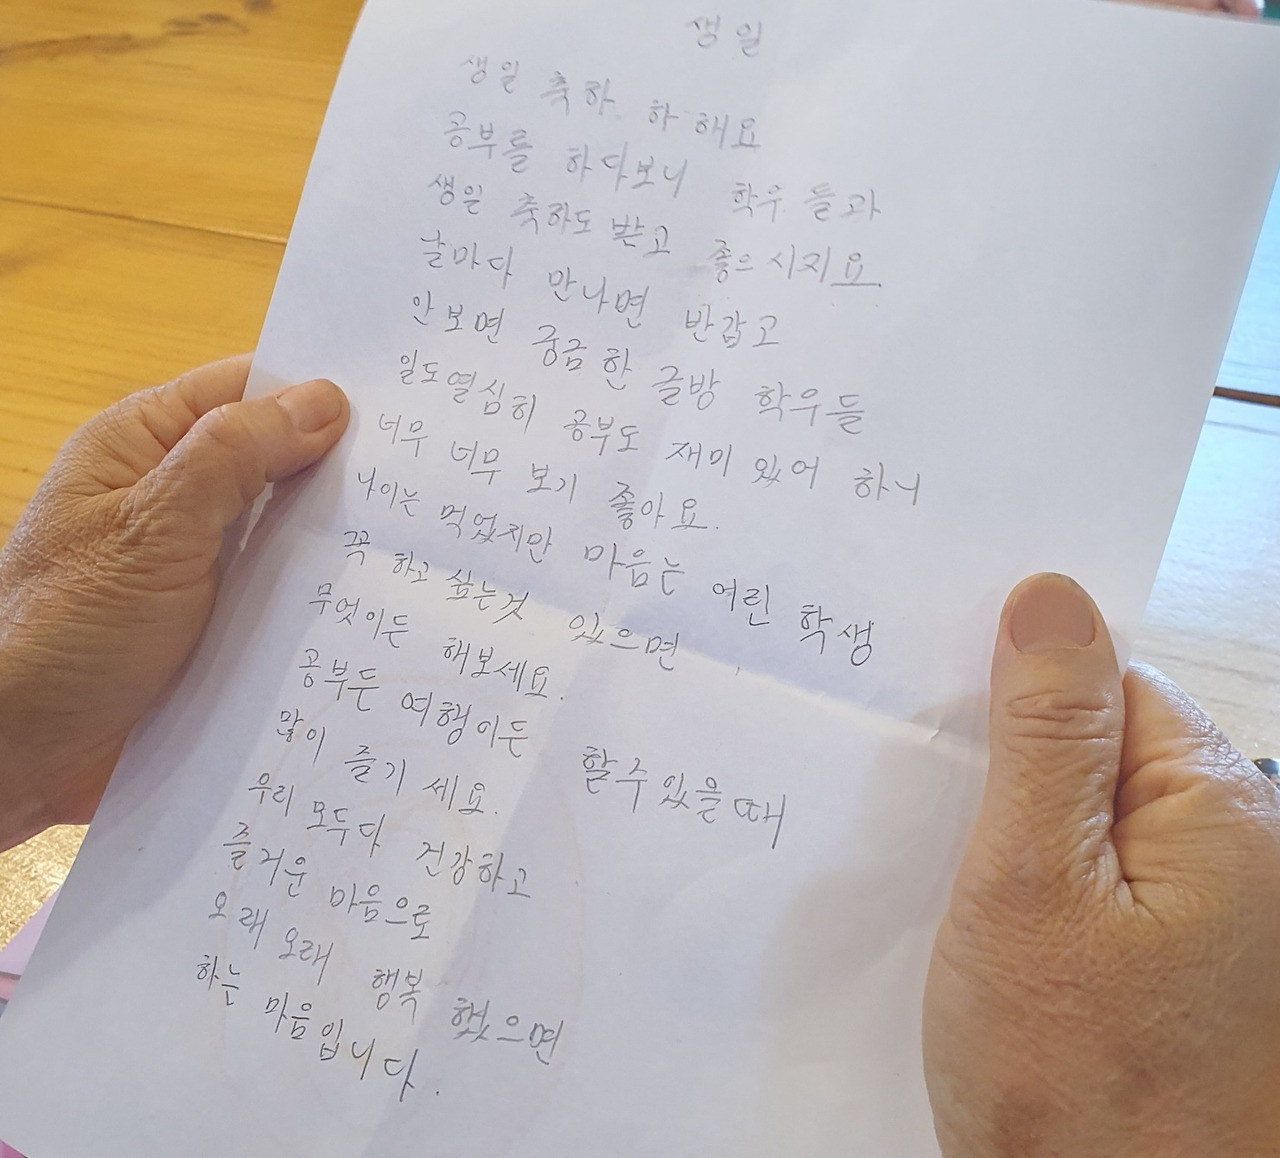 생일
생일 축하 하 해요
공부를 하다보니 학우 들과
생일 축하도 받고 좋으 시지요.
날마다 만나면 반갑고
안 보면 궁금 한 글방 학우들
일도 열심히 공부도 재미 있어 하니
너무 너무 보기 좋아요.
나이는 먹었지만 마음는 어린 학생
꼭 하고 싶는것 있으면
무엇이든 해보세요.
공부든 여행이든 할수 있을때
많이 즐기 세요.
우리 모두다 건강하고
즐거운 마음으로
오래 오래 행복 했으면
하는 마음입니다.